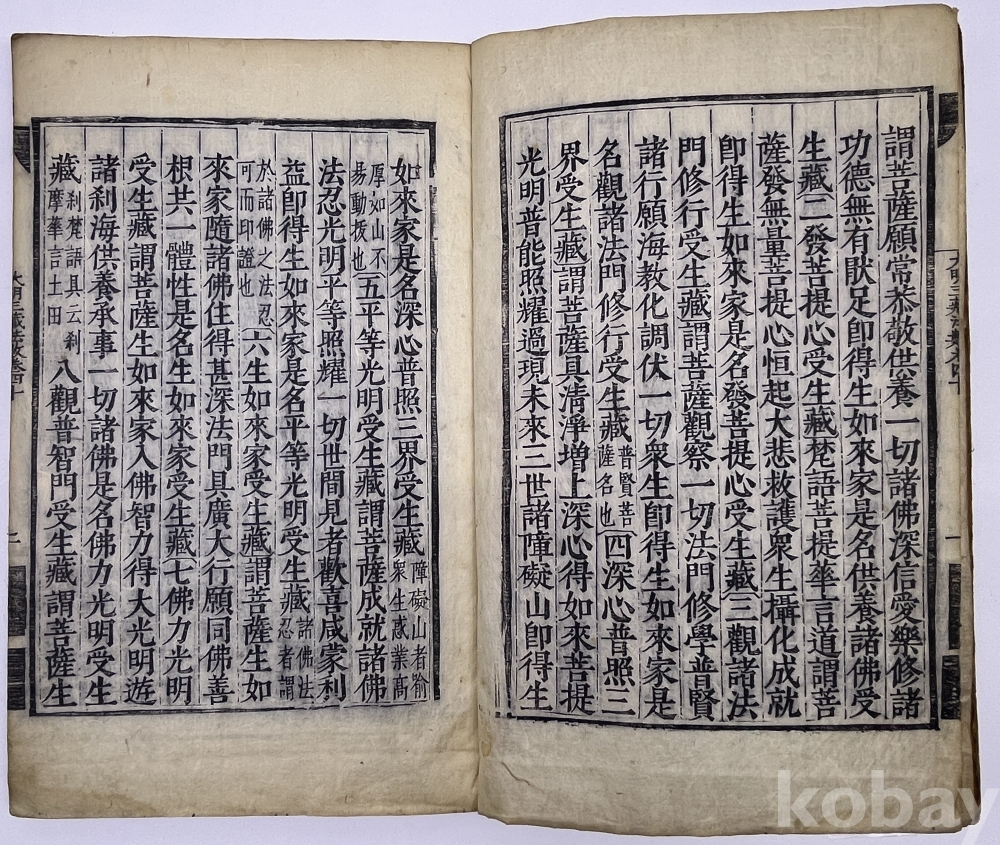 謂菩薩願常恭敬供養一切諸佛深信愛樂修諸
功德無有猒足即得生如來家是名供養諸佛受
生藏二發菩提心受生藏梵語菩提華言道謂菩
薩發無量菩提心恒起大悲救護衆生攝化成就
即得生如來家是名發菩提心受生藏三觀諸法
門修行受生藏謂菩薩觀察一切法門修學普賢
諸行願海教化調伏一切衆生即得生如來家是
名觀諸法門修行受生藏普賢菩薩名也四深心普照三
界受生藏謂菩薩具清淨增上深心得如來菩提
光明普能照耀過現未來三世諸障礙山即得生
一
如來家是名深心普照三界受生藏障礙山者喻衆生惑業高
厚如山不易動拨也五平等光明受生藏謂菩薩成就諸佛
法忍光明平等照耀一切世間見者歡喜咸蒙利
益即得生如來家是名平等光明受生藏諸佛法忍者謂
於諸佛之法忍可而印證也六生如來家受生藏謂菩薩生如
來家隨諸佛住得甚深法門具廣大行願同佛善
根共一體性是名生如來家受生藏七佛力光明
受生藏謂菩薩生如來家入佛智力得大光明遊
諸刹海供養承事一切諸佛是名佛力光明受生
藏刹梵語具云刹摩華言土田八觀普智門受生藏謂菩薩生
大明三藏法數卷四十
二
kobay